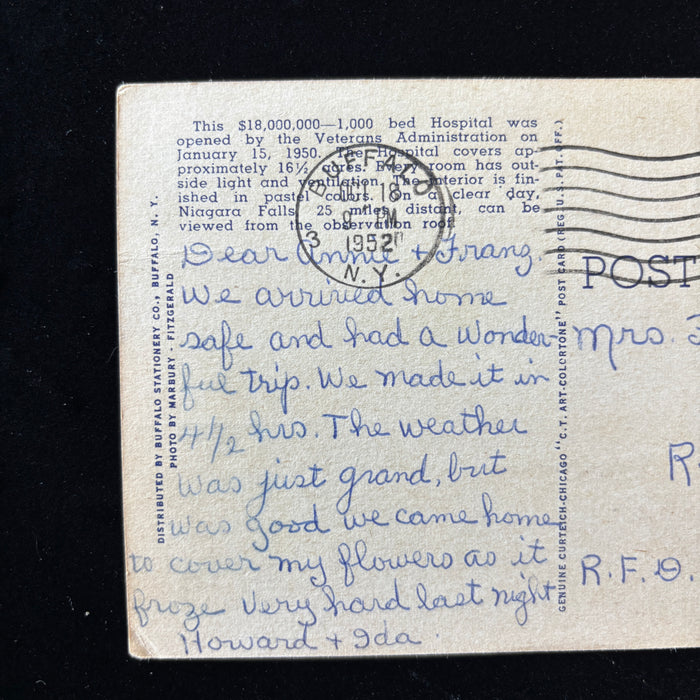 This $18,000,000—1,000 bed Hospital was
opened by the Veterans Administration on
January 15, 1950. The Hospital covers ap-
proximately 16½ acres. Every room has out-
side light and ventilation. The interior is fin-
ished in pastel colors. On a clear day,
Niagara Falls, 25 miles distant, can be
viewed from the observation roof.
BUFFALO
OCT 18
9 PM
1952
3
N.Y.
Dear Annie + Franz.
We arrived home
safe and had a wonder-
ful trip. We made it in
4 1/2 hrs. The weather
was just grand, but
was good we came home
to cover my flowers as it
froze very hard last night
Howard + Ida.
DISTRIBUTED BY BUFFALO STATIONERY CO., BUFFALO, N. Y.
PHOTO BY MARBURY - FITZGERALD
GENUINE CURTEICH-CHICAGO "C.T. ART-COLORTONE" POST CARD (REG. U.S. PAT. OFF.)
POST
Mrs.
R
R.F.D.